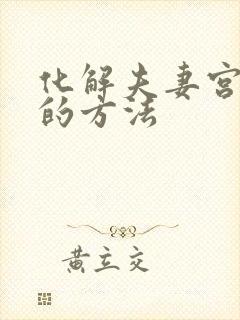 化解夫妻宫
的方法
黄立交